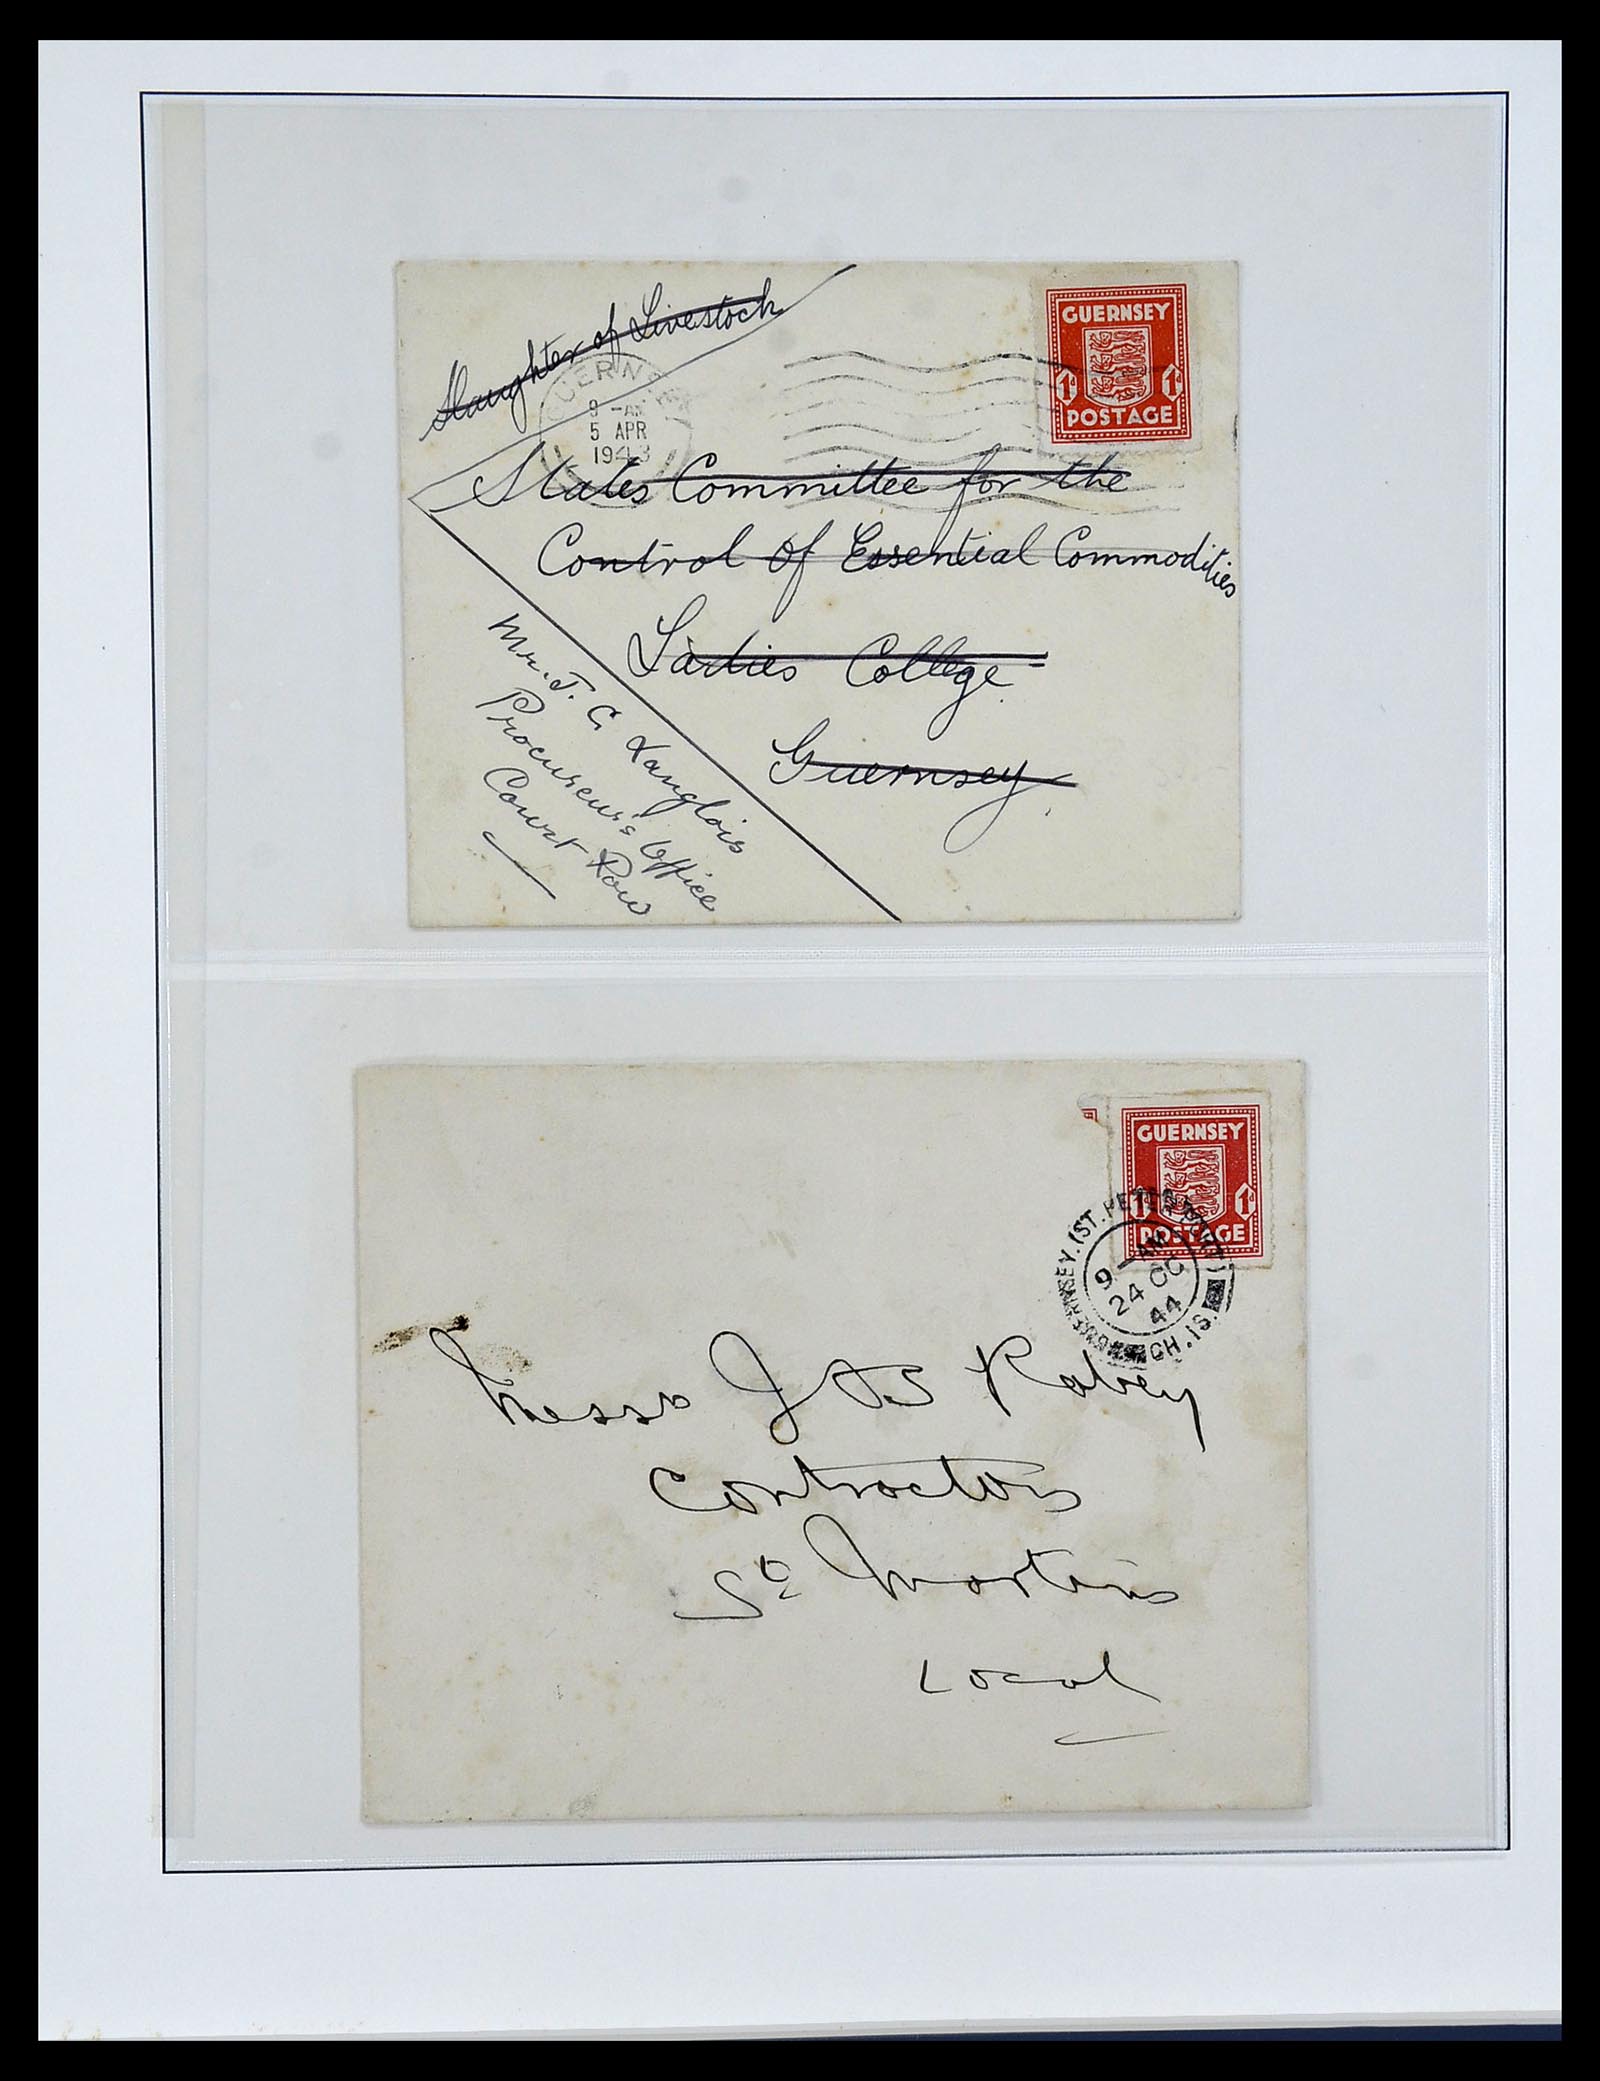 Slaughter of Livestock
GUERNSEY
1D 1D
POSTAGE
GUERNSEY
9 - AM
5 APR
1943
States Committee for the
Control of Essential Commodities
Ladies College
Guernsey
Mr. J. C. Langlois
Procureur's Office
Court Row
GUERNSEY
1D 1D
POSTAGE
GUERNSEY. (ST. PETER PORT) CH. IS.
9 - AM
24 OC
44
Messrs J & S Robey
Contractors
St Martins
Local